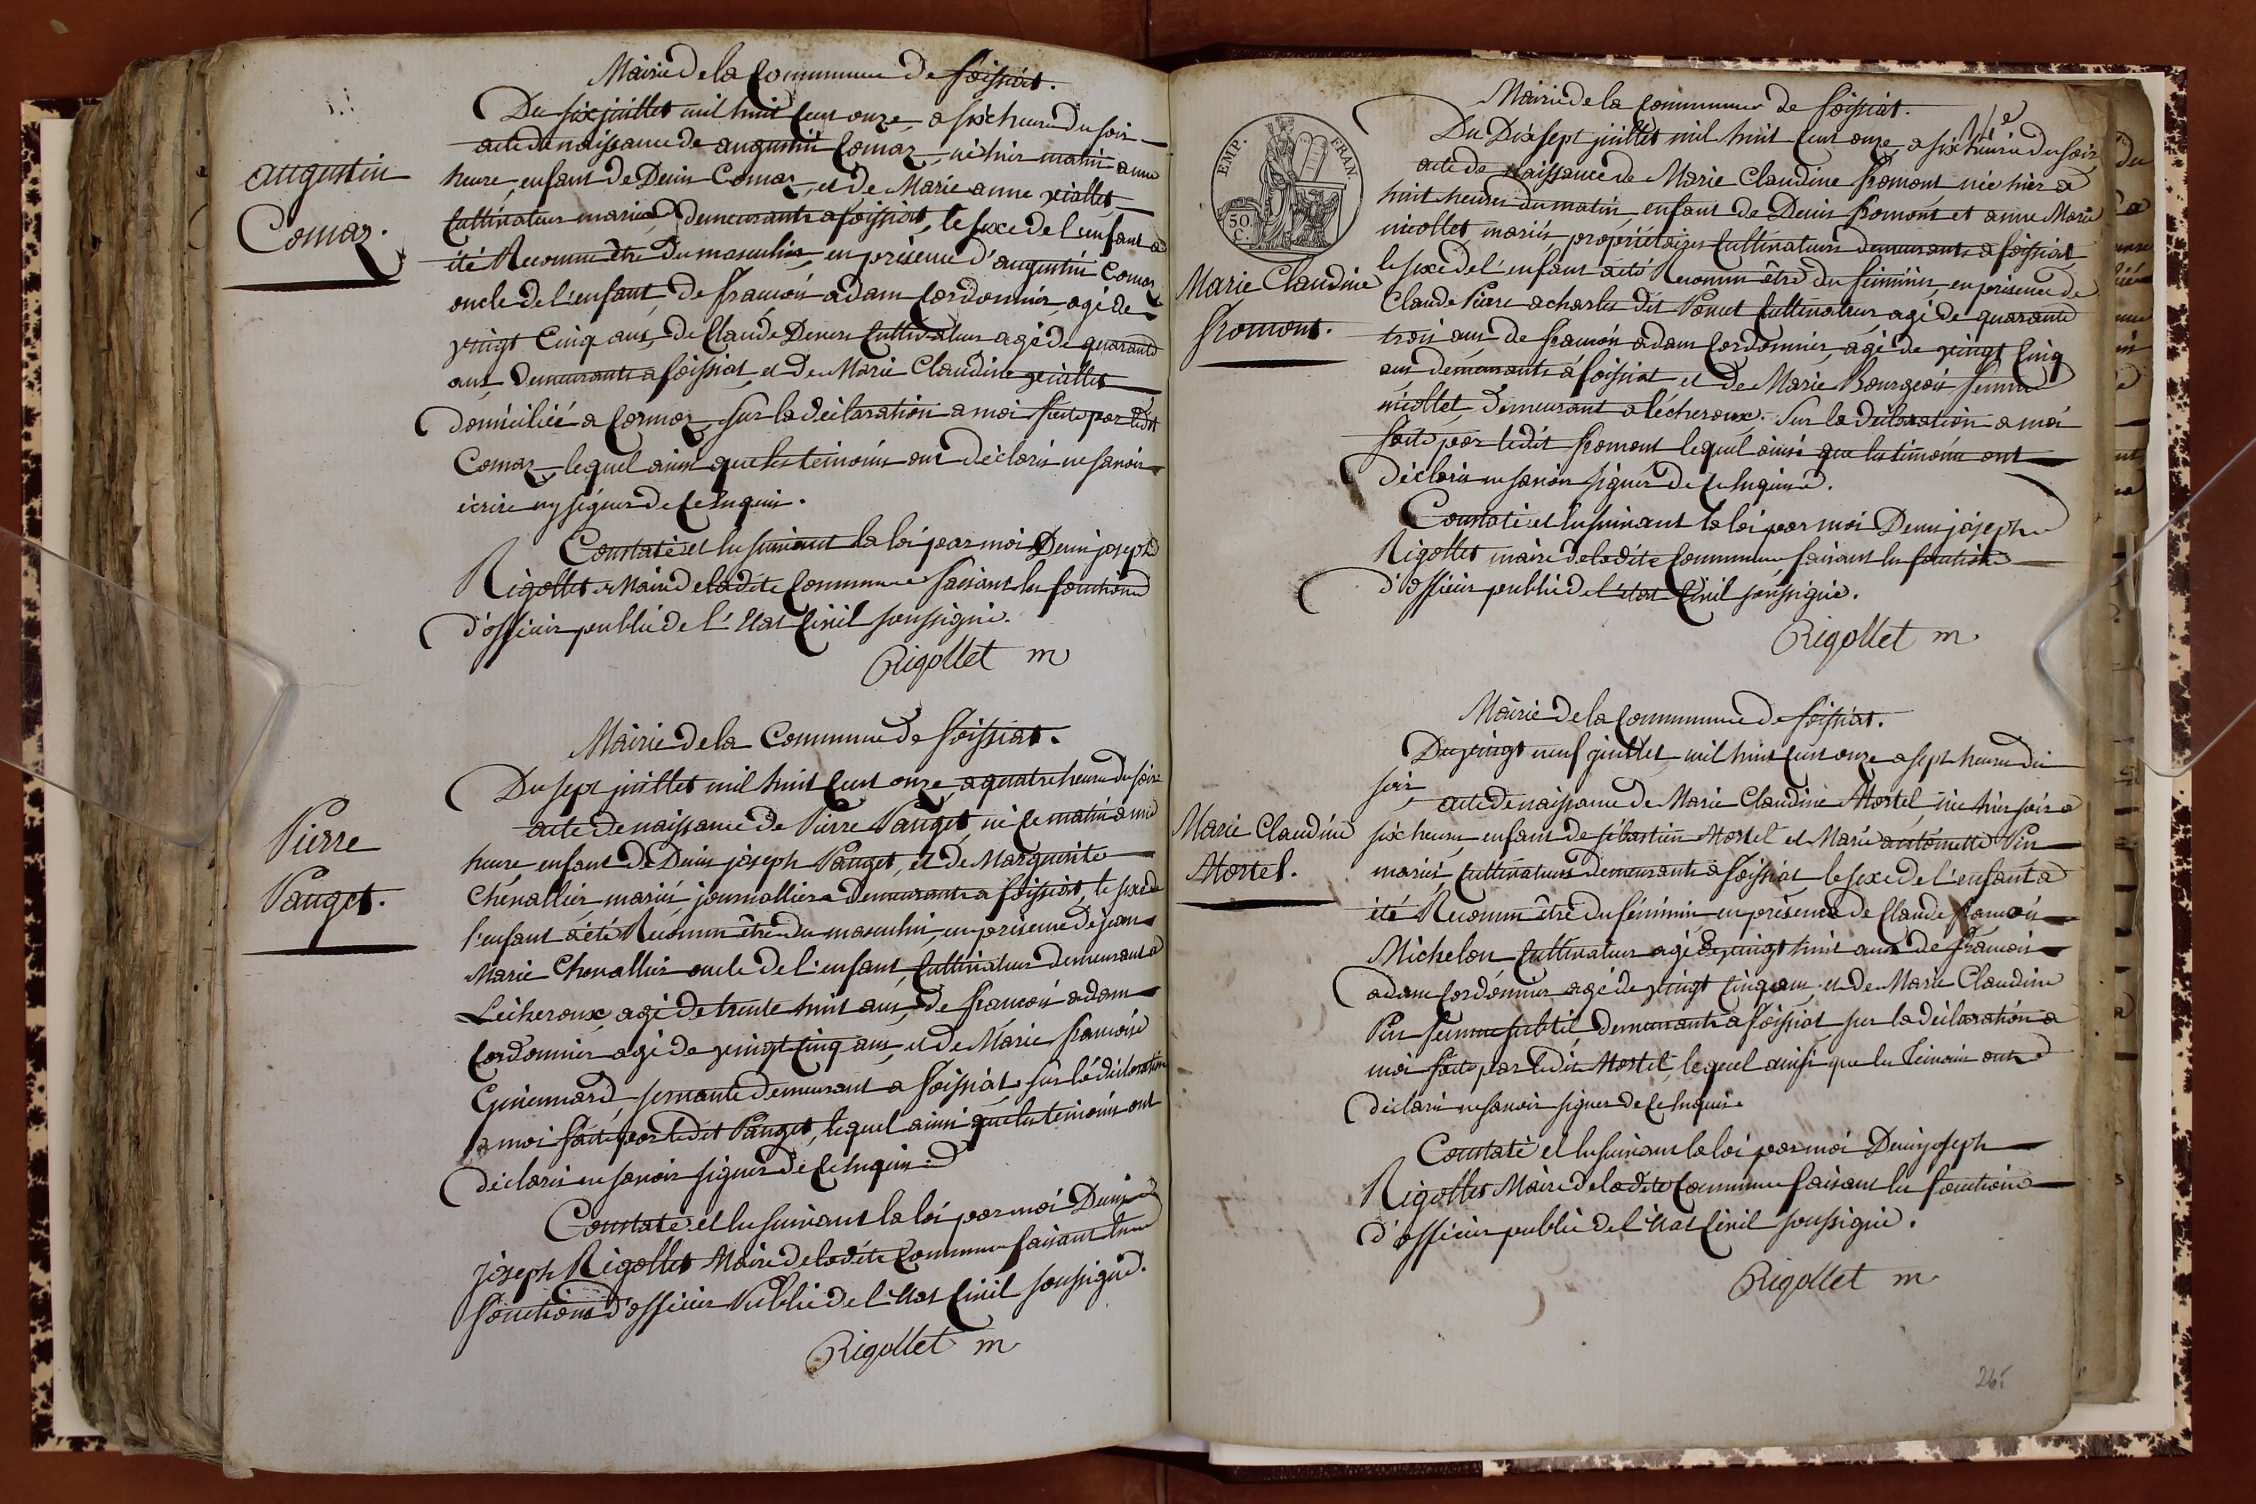 Mairie de la Commune de foissiat.
Du six juillet mil huit Cent onze, a six heure du soir
acte de naissance de augustin Comaz, né hier matin a une
heure, enfant de Denis Comaz, et de Marie anne viallet
Cultivateur mariés, demeurants a foissiat, le sexe de l'enfant a
été Reconnu être du masculin, en présence d'augustin Comaz
oncle de l'enfant, de françois adam Cordonnier, agé de
vingt Cinq ans, de Claude Cultivateur agé de quarante
ans demeurants a foissiat, et de Marie Claudine viallet
domiciliée a Cormoz, sur la déclaration a moi faite par ledit
Comaz, lequel ainsi que les temoins ont déclarés ne savoir
écrire ny signer de Ce Enquis.
Constaté et lu suivant la loi par moi Denis joseph
Rigollet Maire de ladite Commune faisant les fonctions
d'officier public de l'Etat Civil soussigné.
Rigollet m
augustin
Comaz.
Mairie de la Commune de foissiat.
Du sept juillet mil huit Cent onze, a quatre heure du soir
acte de naissance de Pierre Pauget, né Ce matin a une
heure, enfant de Denis joseph Pauget, et de Marguerite
Chevallier, mariés, journalliers demeurants a foissiat, le sexe de
l'enfant a été Reconnu être du masculin, en présence de jean
Marie Chevallier oncle de l'enfant, Cultivateur demeurant a
Lécheroux, agé de trente huit ans, de françois adam
Cordonnier agé de vingt Cinq ans, et de Marie françoise
servante demeurant a foissiat, sur la déclaration
a moi faite par ledit Pauget, lequel ainsi que les temoins ont
déclarés ne savoir signer de Ce Enquis.
Constaté et lu suivant la loi par moi Denis
joseph Rigollet Maire de ladite Commune faisant les
fonctions d'officier Public de l'Etat Civil soussigné.
Rigollet m
Pierre
Pauget.
Mairie de la Commune de foissiat.
Du Dix sept juillet mil huit Cent onze, a six heure du soir
acte de naissance de Marie Claudine fromont née hier a
huit heures du matin, enfant de Denis fromont et anne Marie
nicollet mariés, propriétaires Cultivateurs demeurants a foissiat
le sexe de l'enfant a été Reconnu être du féminin, en présence de
Claude Pierre acharles dit Poncet Cultivateur agé de quarante
trois ans, de françois adam Cordonnier, agé de vingt Cinq
ans demeurants a foissiat et de Marie Bourgeois femme
nicollet, demeurant a lécheroux, sur la déclaration a moi
faite par ledit fromont lequel ainsi que les timoins ont
déclarés ne savoir signer de Ce Enquis.
Constaté et lu suivant la loi par moi Denis joseph
Rigollet maire de ladite Commune faisant les fonctions
d'officier public de l'état Civil soussigné.
Rigollet m
EMP. FRAN.
50.
C.
Marie Claudine
fromont.
Mairie de la Commune de foissiat.
Du vingt neuf juillet mil huit Cent onze a sept heure du
soir, acte de naissance de Marie Claudine Mortel, née hier soir a
six heures, enfant de sébastien Mortel et Marie antoinette Pin
mariés, Cultivateurs demeurants a foissiat le sexe de l'enfant a
été Reconnu être du féminin en présence de Claude françois
Michelon Cultivateur agé de vingt huit ans de françois
adam Cordonnier agé de vingt Cinq ans et de Marie Claudine
Pin femme subtil, demeurants a foissiat sur la déclaration a
moi faite par ledit Mortel, lequel ainsi que les temoins ont
déclarés ne savoir signer de Ce Enquis.
Constaté et lu suivant la loi par moi Denis joseph
Rigollet Maire de ladite Commune faisant les fonctions
d'officier public de l'Etat Civil soussigné.
Rigollet m
Marie Claudine
Mortel.